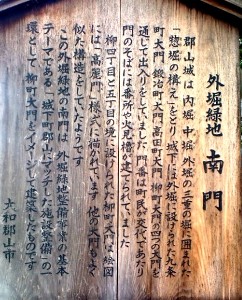 外堀緑地 南門
郡山城は内堀、中堀、外堀の三重の堀に囲まれた
「惣堀の構え」をとり、城下には外堀に設けられた九条
町大門、鍛冶町大門、高田町大門、柳町大門の四つの大門を
通して出入りをしていました。門番は町民が交代であたり
門のそばには番所や火見櫓が建てられていました
柳四丁目と五丁目の境に設けられた柳町大門は絵図
には「高麗門」様式に描かれています。他の大門もよく
似た構造をしていたようです
この外堀緑地の南門は、外堀緑地整備事業の基本
テーマである「城下町郡山にマッチした施設整備」の一
環として、柳町大門をイメージして建築したものです
大和郡山市